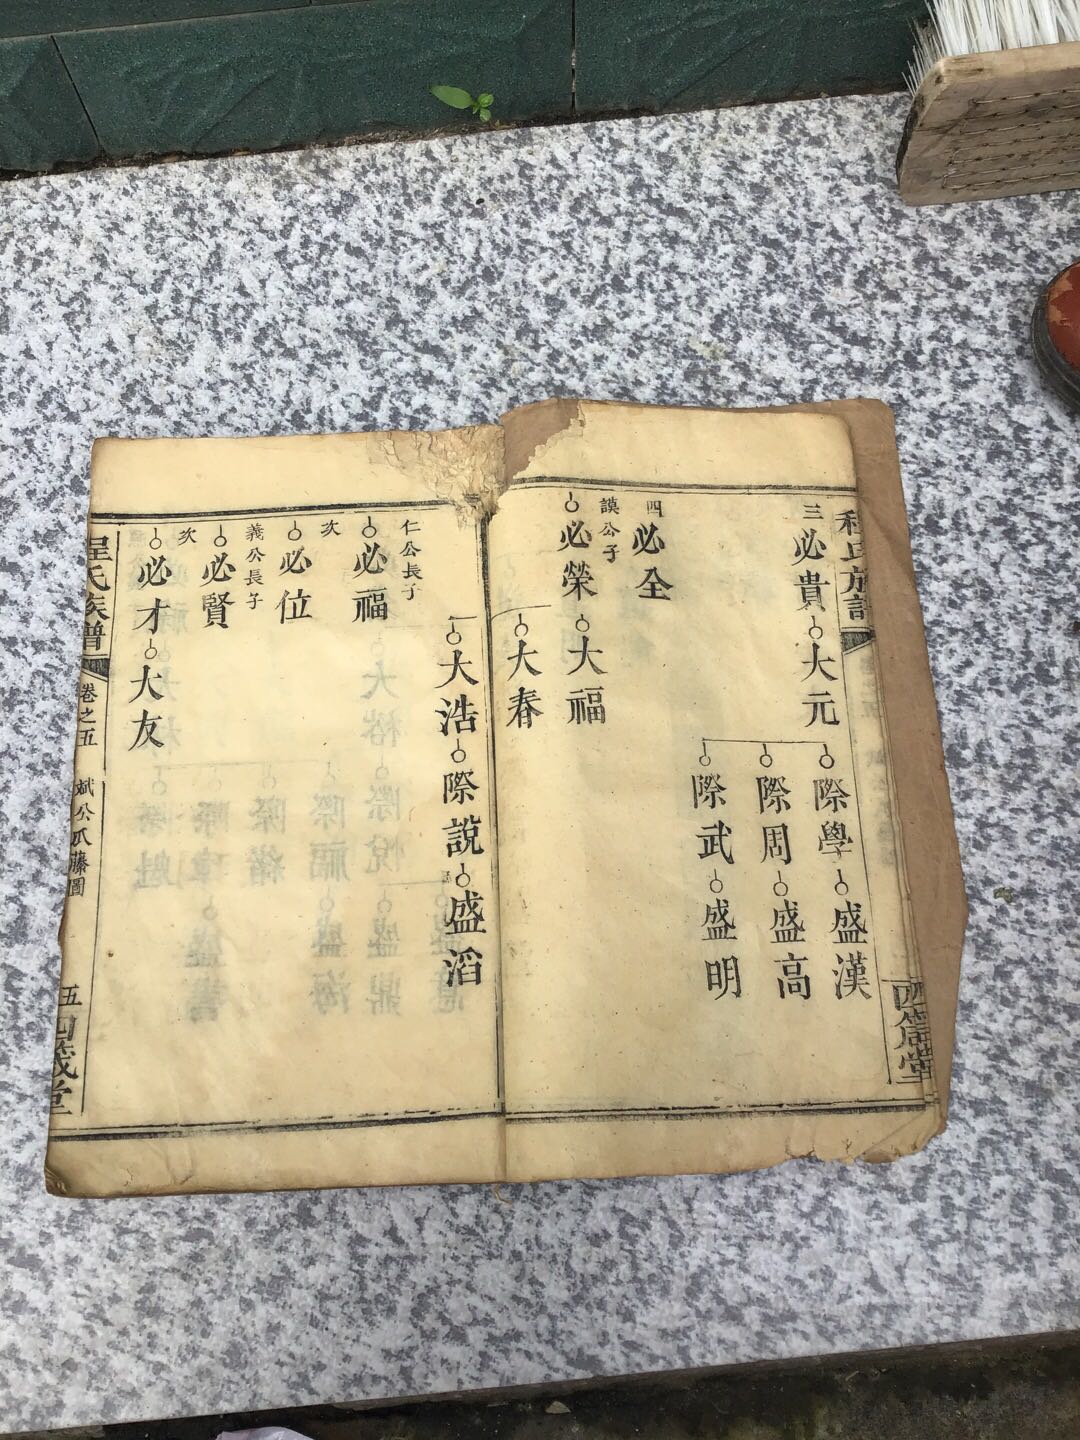 程氏族譜
四箴堂
三必貴大元際學盛漢
際周盛高
際武盛明
四必全
謨公子
必榮大福
大春
大浩際說盛滔
仁公長子
必福
次
必位
義公長子
必賢
次
必才大友
程氏族譜 卷之五 斌公瓜藤圖 五 四箴堂